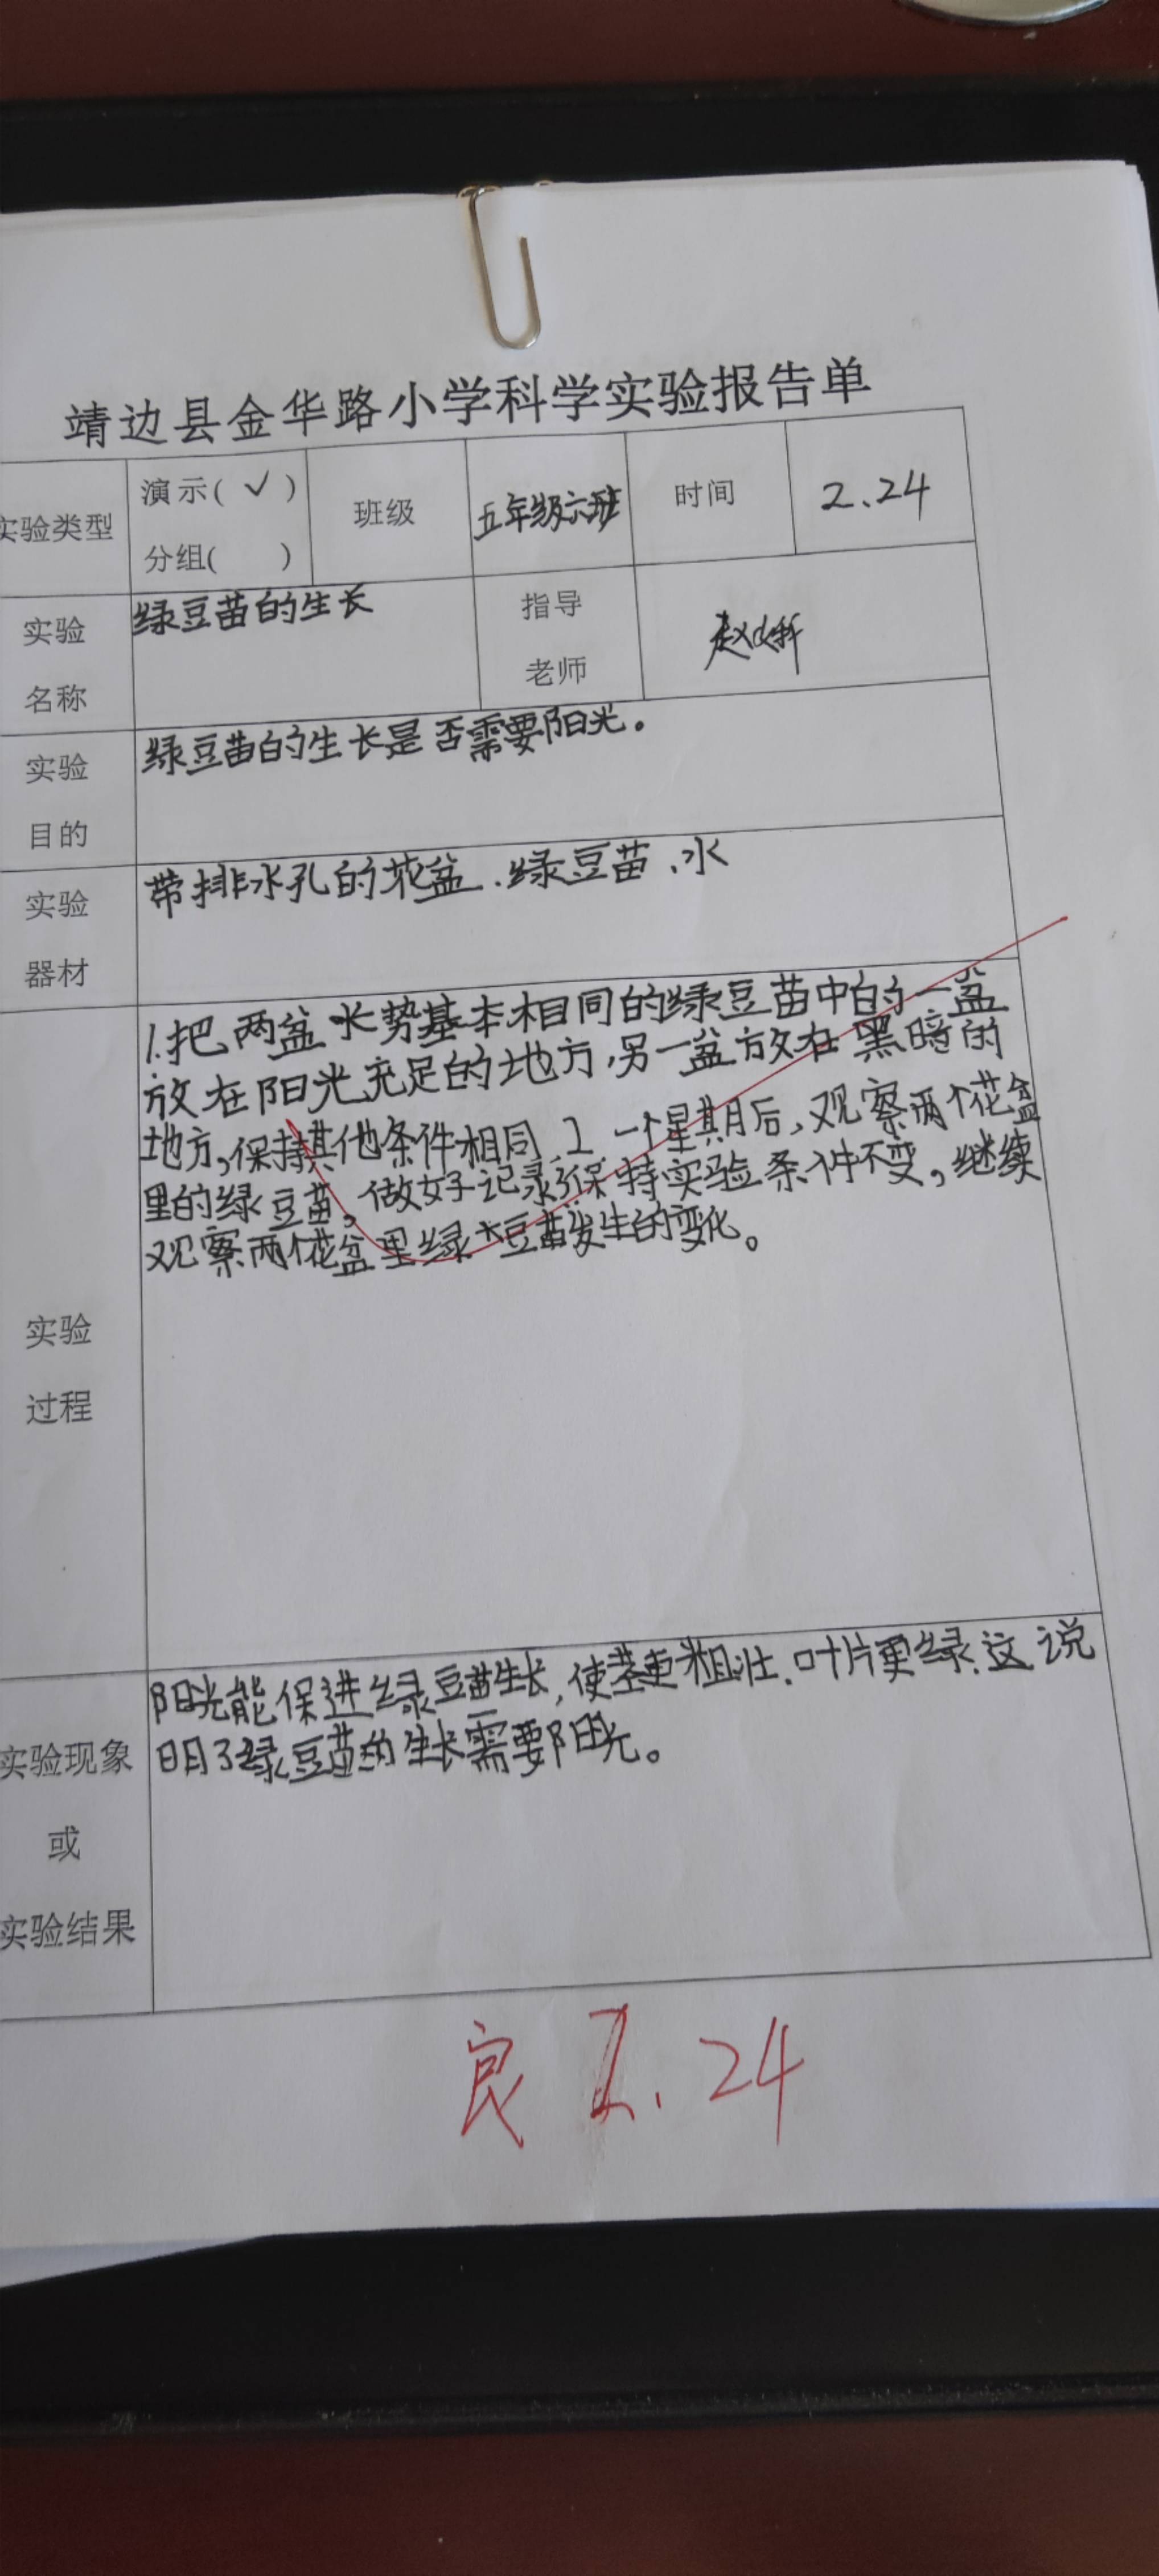 靖边县金华路小学科学实验报告单
实验类型 演示(√) 分组( ) 班级 五年级六班 时间 2.24
实验名称 绿豆苗的生长 指导老师 赵
实验目的 绿豆苗的生长是否需要阳光。
实验器材 带排水孔的花盆、绿豆苗、水
1.把两盆长势基本相同的绿豆苗中的一盆
放在阳光充足的地方,另一盆放在黑暗的
地方,保持其他条件相同 2.一个星期后,观察两个花盆
里的绿豆苗。做好记录 保持实验条件不变,继续
观察两个花盆里绿豆苗发生的变化。
实验
过程
阳光能保进绿豆苗生长,使茎更粗壮.叶片更绿.这说
明了绿豆苗的生长需要阳光。
实验现象
或
实验结果
良 2.24